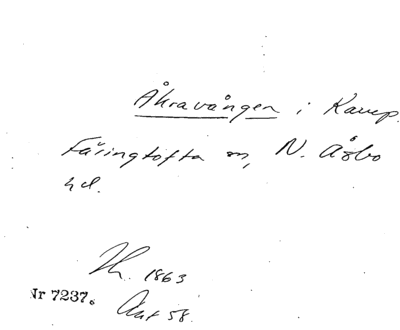 Åkravången i Kamp.
Färingtofta sn, N. Åsbo
hd.
1863
Nr 7237.
Akt 58.